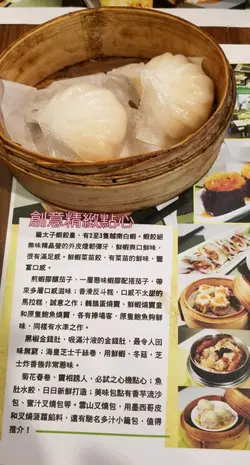 創意精緻點心
羅太子蝦餃皇，有2至3隻越南白蝦。蝦餃絕
無味精晶瑩的外皮煙韌彈牙，鮮蝦爽口鮮味，
很有滿足感。鮮蝦菜苗餃，有菜苗的鮮味，豐
富口感。
煎蝦膠釀茄子，一層惹味蝦膠配搭茄子，帶
來多層口感滋味；香滑反斗糕，口感不太甜的
馬拉糕，誠意之作；轉鵝蛋燒賣、鮮蝦燒賣皇
和原隻鮑魚燒賣，各有捧場客，原隻鮑魚夠鮮
味，同樣有水準之作。
黑椒金錢肚，吸滿汁液的金錢肚，最令人回
味無窮；海皇芝士千絲卷，用鮮蝦、冬菇，芝
士炸香後非常惹味。
菊花香卷，賣相誘人，必試之心機點心；魚
肚水餃，日日新鮮打造；美味包點有香芋流沙
包、蜜汁叉燒包等。雪山叉燒包，用墨西哥皮
和叉燒菠蘿餡料，還有馳名多汁小籠包，值得
推介！